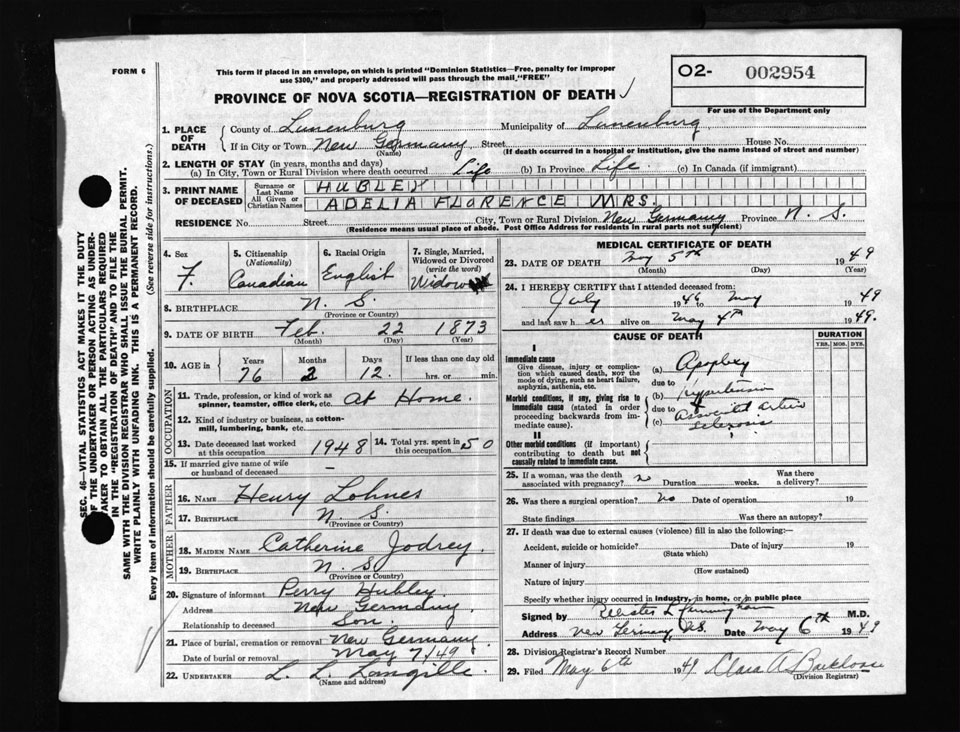 FORM 6
This form if placed in an envelope, on which is printed "Dominion Statistics—Free, penalty for improper
use $300," and properly addressed will pass through the mail "FREE"
PROVINCE OF NOVA SCOTIA—REGISTRATION OF DEATH
O2- 002954
For use of the Department only
1. PLACE OF DEATH { County of Lunenburg Municipality of Lunenburg
If in City or Town New Germany Street House No.
(Name) (If death occurred in a hospital or institution, give the name instead of street and number)
2. LENGTH OF STAY (in years, months and days)
(a) In City, Town or Rural Division where death occurred Life (b) In Province Life. (c) In Canada (if immigrant)
3. PRINT NAME OF DECEASED { Surname or Last Name HUBLEY
All Given or Christian Names ADELIA FLORENCE MRS.
RESIDENCE No. Street City, Town or Rural Division New Germany Province N. S.
(Residence means usual place of abode. Post Office Address for residents in rural parts not sufficient)
4. Sex F.
5. Citizenship (Nationality) Canadian
6. Racial Origin English
7. Single, Married, Widowed or Divorced (write the word) Widow
8. BIRTHPLACE N. S.
(Province or Country)
9. DATE OF BIRTH Feb. 22 1873
(Month) (Day) (Year)
10. AGE in { Years Months Days If less than one day old
76 2 12. hrs. or min.
OCCUPATION
11. Trade, profession, or kind of work as spinner, teamster, office clerk, etc. At Home.
12. Kind of industry or business, as cotton-mill, lumbering, bank, etc.
13. Date deceased last worked at this occupation 1948 14. Total yrs. spent in this occupation 50
15. If married give name of wife or husband of deceased —
FATHER
16. NAME Henry Lohnes
17. BIRTHPLACE N. S.
(Province or Country)
MOTHER
18. MAIDEN NAME Catherine Jodrey.
19. BIRTHPLACE N. S.
(Province or Country)
20. Signature of informant Perry Hubley
Address New Germany.
Relationship to deceased Son.
21. Place of burial, cremation or removal New Germany
Date of burial or removal May 7/49
22. UNDERTAKER L. L. Langille.
(Name and address)
MEDICAL CERTIFICATE OF DEATH
23. DATE OF DEATH May 5th 1949
(Month) (Day) (Year)
24. I HEREBY CERTIFY that I attended deceased from
July 1946 to May 1949
and last saw h er alive on May 4th 1949.
CAUSE OF DEATH
DURATION
YRS. MOS. DYS.
I
Immediate cause
Give disease, injury or complication which caused death, NOT the mode of dying, such as heart failure, asphyxia, asthenia, etc.
(a) Apoplexy
due to
Morbid conditions, if any, giving rise to immediate cause (stated in order proceeding backwards from immediate cause).
(b) Hypertension
due to
(c) Associated Arterio sclerosis
II
Other morbid conditions (if important) contributing to death but not causally related to immediate cause.
25. If a woman, was the death associated with pregnancy? no Duration weeks. Was there a delivery?
26. Was there a surgical operation? no Date of operation 19
State findings Was there an autopsy?
27. If death was due to external causes (violence) fill in also the following:—
Accident, suicide or homicide? Date of injury 19
(State which)
Manner of injury
(How sustained)
Nature of injury
Specify whether injury occurred in industry, in home, or in public place
Signed by L Cunningham M.D.
Address New Germany, N.S. Date May 6th 1949
28. Division Registrar's Record Number
29. Filed May 6th 1949 Clara A Barkhouse
(Division Registrar)
SEC. 46—VITAL STATISTICS ACT MAKES IT THE DUTY
OF THE UNDERTAKER OR PERSON ACTING AS UNDER-
TAKER TO OBTAIN ALL THE PARTICULARS REQUIRED
IN THE "REGISTRATION OF DEATH" AND TO FILE THE
SAME WITH THE DIVISION REGISTRAR WHO SHALL ISSUE THE BURIAL PERMIT.
WRITE PLAINLY WITH UNFADING INK. THIS IS A PERMANENT RECORD.
Every item of information should be carefully supplied. (See reverse side for instructions.)